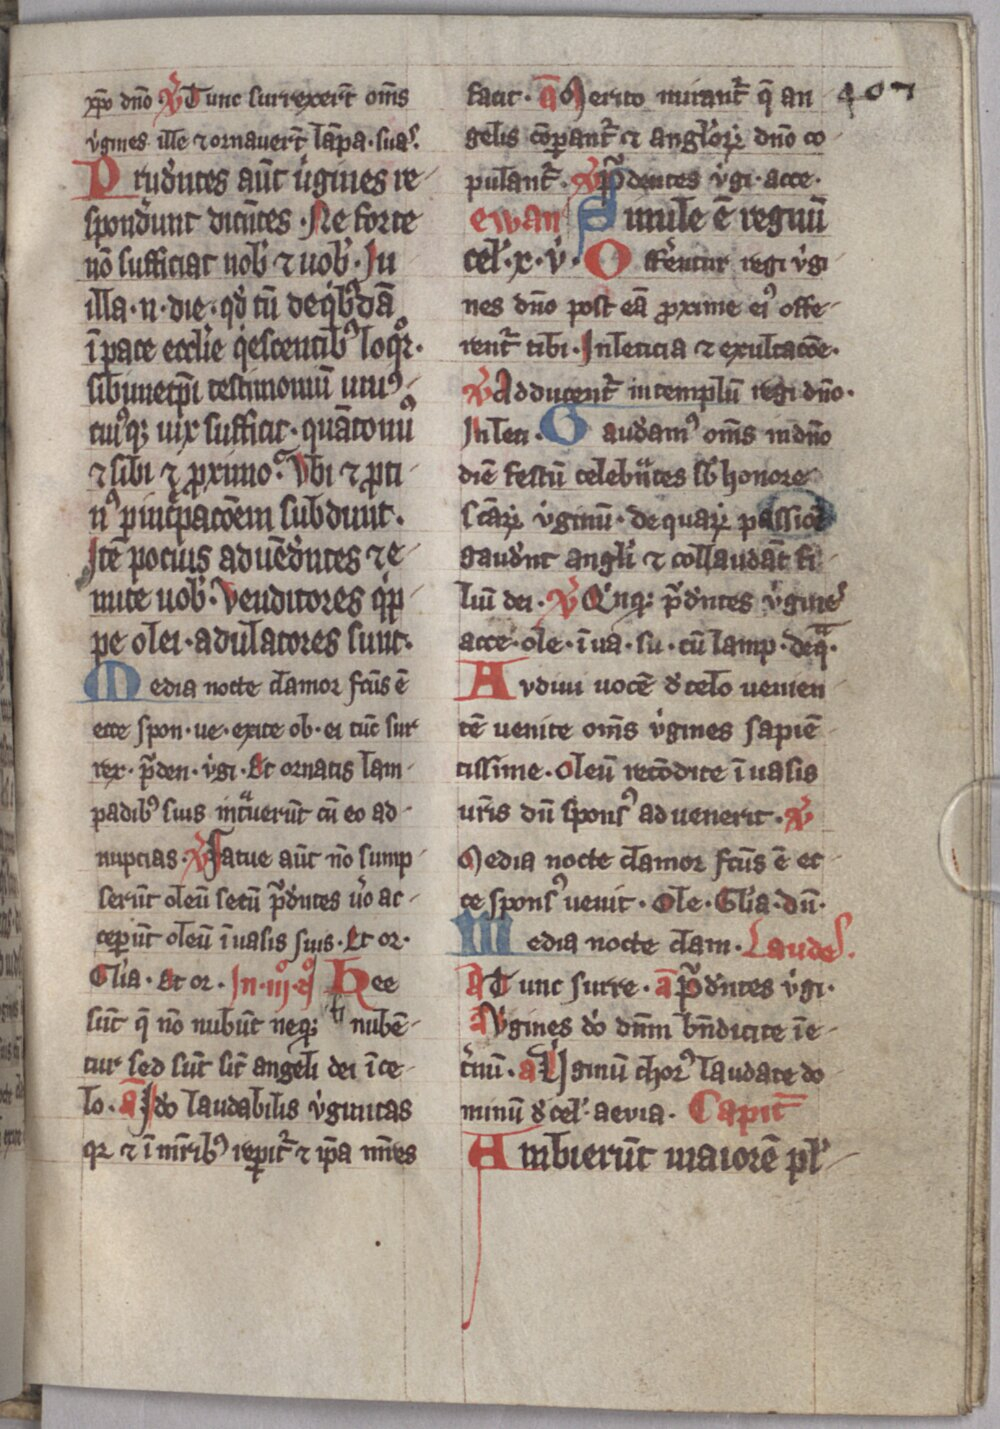 xpo dno ℣ Tunc surrexert̄ om̄s
v̓gines ille ⁊ ornaver̄t lāpa·suas̓
Prudn̄tes aūt v̓gines re
spondūnt dicn̄tes·Ne forte
nō sufficiat nob̓ ⁊ uob̓·In
illa·n·die·qd̓ cū de q̓bꝰdā
ī pace ecclīe q̓escentibꝰ loqr̓·
sibimetip̄i testimoniū uniꝰ
cuiꝰqꝫ uix sufficit·quātonū
⁊ sibi ⁊ ꝓximo·Vbi ⁊ ꝓti
nꝰ p̱ incr̄pacōem subdunt·
Ite pociꝰ ad uēdn̄tes ⁊ e
mite uob̓·Venditores q̓p
pe olei·adulatores sunt·
Media nocte clamor fcūs ē
ecce spon·ve·exite ob·ei tūc sur
rex·p̄den·vg̓i·Et ornatis lam
padibꝰ suis intᵃuerūt cū eo ad
nupcias·℣ Fatue aūt nō sump
serūt oleū secū p̄dn̄tes vo̓ ac
cep̱ūt oleū ī uasis suis·Et or·
Glīa·Et or·In·iijº·nº Hee
sūt q̄ nō nubūt neqꝫ nubē
tur sed sūt sic̄ angeli dei ī ce
lo·a Ido laudabilis v̓ginitas
qꝛ ⁊ ī mr̄ibꝰ rep̱it̄ ⁊ ip̄a mr̄es
facit·a Merito mirant̄ q̄ an
gelis cōp̱ant̄ ⁊ angl̓oꝝ dno co
pulant̄·℣ P̄dentes v̓gi·acce·
ewan Simile ē regnū
cel̓·x·v̓· Offēntur regi v̓gi
nes dno post eā ꝓxime eiꝰ offe
rent̄ tibi·In leticia ⁊ exultacōe·
℣ Adducent̄ in templū regi dno·
In leti· Gaudamꝰ om̄s in dno
diē festū celebᵃn̄tes sb̓ honore
scāꝝ v̓ginū·de quaꝝ passiōe
gaudn̄t angli̓ ⁊ collaudāt fi
liū dei·℣ Qn̓qꝫ p̄dn̄tes v̓gines̓
acce·ole·ī ua·su·cū lamp·deqᵃ·
Audiui uocē d̓ celo uenien
tē uenite om̄s v̓gines sapiē
tissime·oleū recōdite ī uasis
ur̄is dū sponsꝰ aduenerit·℣
Media nocte clamor fcūs ē ec
ce sponsꝰ uenit·Ole·Glīa·dū·
Media nocte clam·Laudes̓·
a Tunc surre·a P̄dn̄tes v̓gi·
a Vgines do̓ dnm bn̄dicite ī e
t̓nū·a Vginū chorꝰ laudate do
minū d̓ cel̓·aevia· Capit̄
Ambierūt maiorē pl̓
407